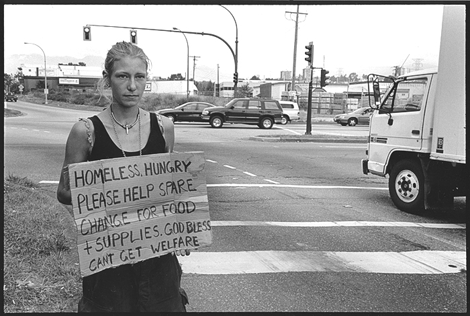 HOMELESS. HUNGRY
PLEASE HELP SPARE
CHANGE FOR FOOD
+ SUPPLIES. GOD BLESS
CANT GET WELFARE